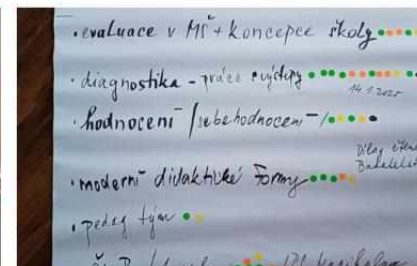 • evaluace v MŠ + koncepce školy
• diagnostika - práce s výstupy
14.1.2025
• hodnocení / sebehodnocení - /
• moderní didaktické formy
• pedag tým